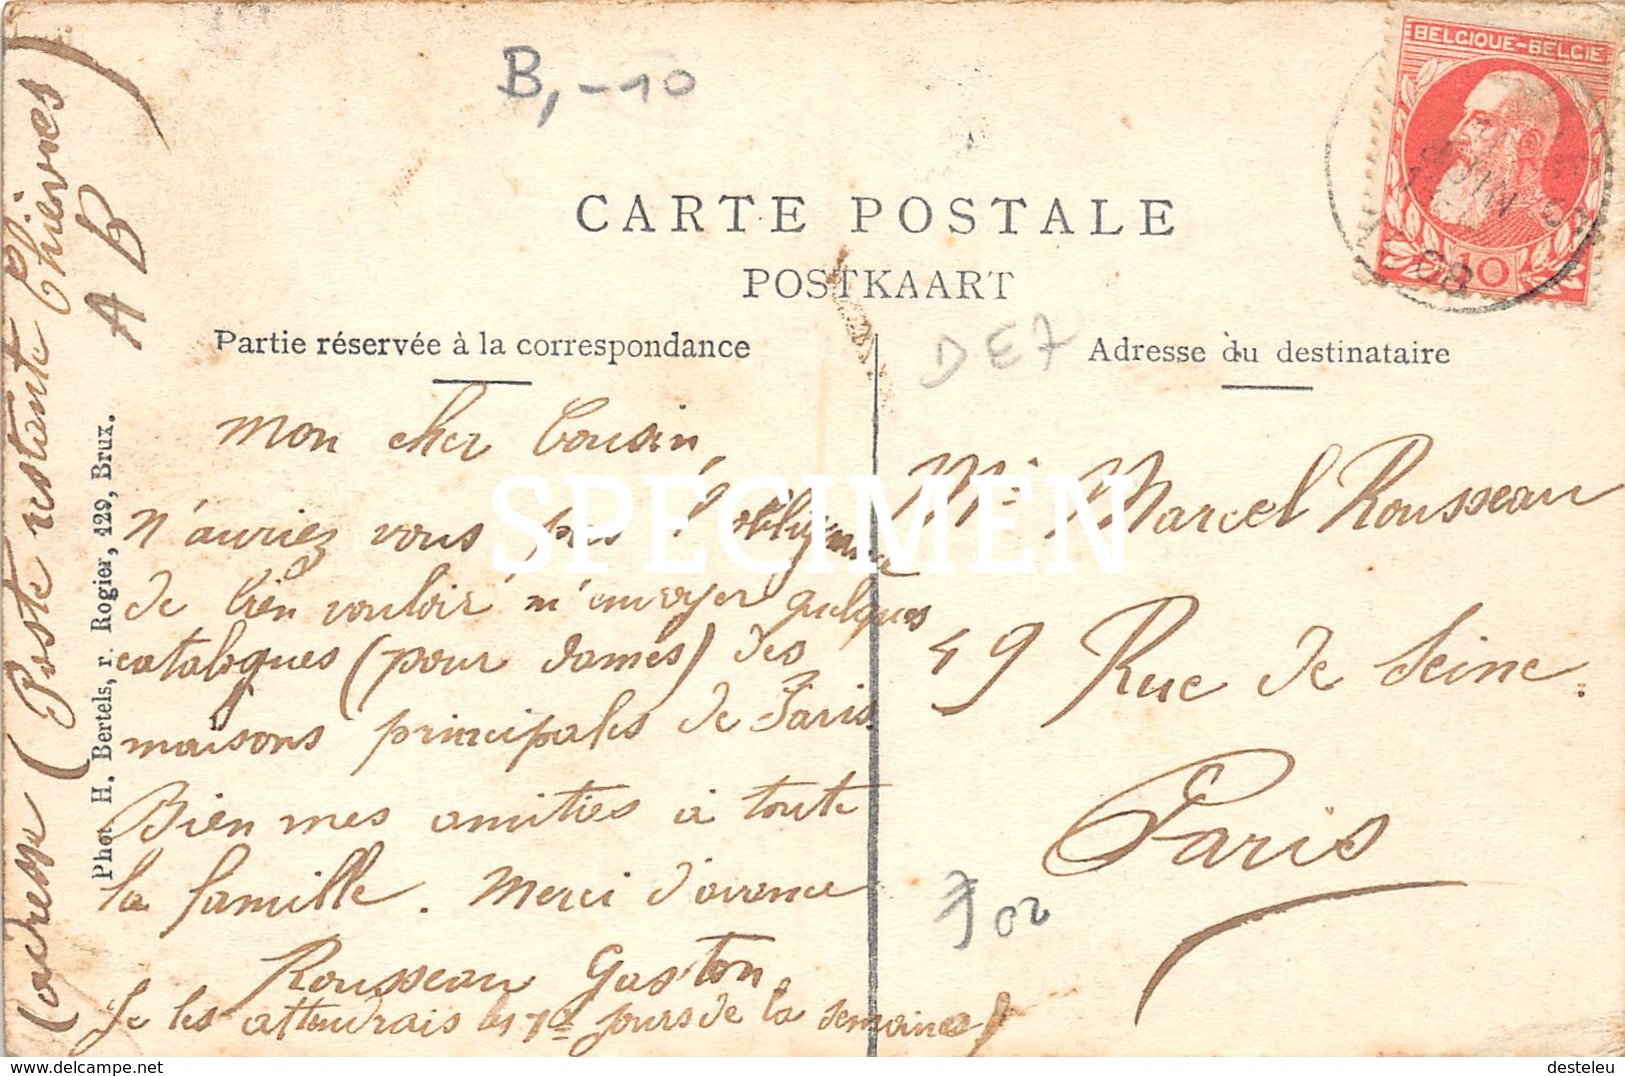 B,-10
BELGIQUE-BELGIE
10
JUIN
08
CARTE POSTALE
POSTKAART
Partie réservée à la correspondance
Adresse du destinataire
DE7
Mon cher Cousin,
N'auriez vous pas l'obligeance
de bien vouloir m'envoyer quelques
catalogues (pour dames) des
maisons principales de Paris.
Bien mes amitiés à toute
la famille. Merci d'avance
Rousseau Gaston
Je les attendrais les 1er jours de la semaine
Mr Marcel Rousseau
49 Rue de Seine.
Paris
02
(adresse (Poste restante Chièvres)
A B
Phot H. Bertels, r. Rogier, 129, Brux.
SPECIMEN
delcampe.net
desteleu